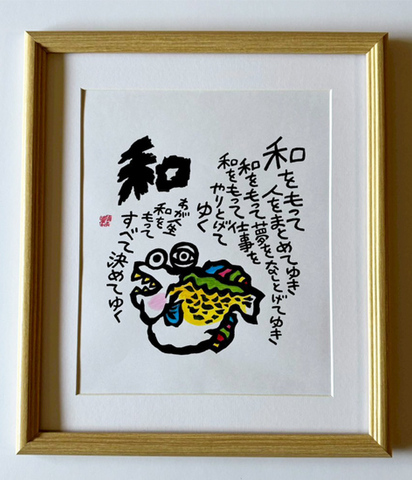 和
和をもって
人をまとめてゆき
和をもって夢をなしとげてゆき
和をもって仕事を
やりとげて
ゆく
わが人生
和を
もって
すべて決めてゆく